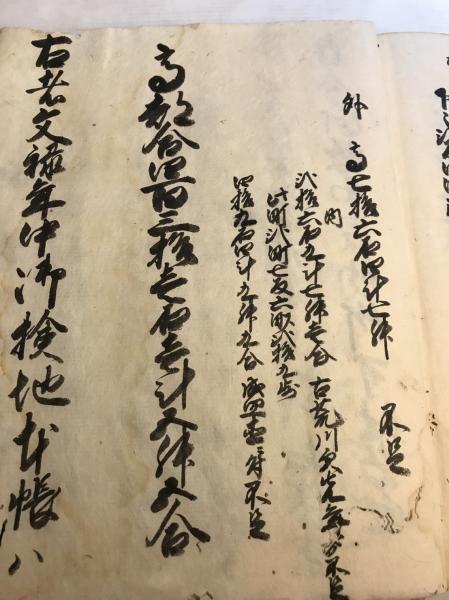 外 高七拾六石四斗七升 不足
内
弐拾六石九斗七升壱合 古荒川欠先年ゟ不足
此町弐町七反六畝弐拾九歩
四拾九石四斗九升九合 不足
高都合四百三拾壱石壱斗五升五合
右者文禄年中御検地本帳ハ